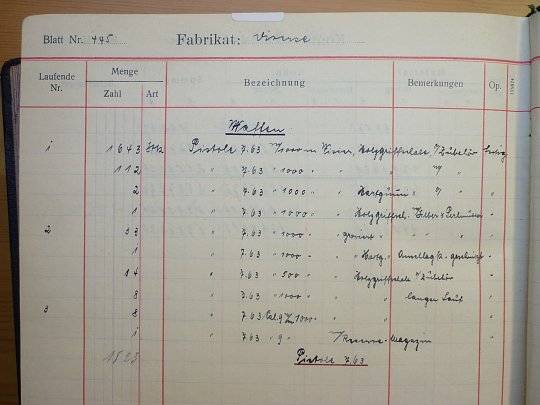 Blatt Nr. 445 Fabrikat: Diverse
Laufende Nr. Menge Zahl Art Bezeichnung Bemerkungen Op.
Waffen.
1 1643 Stk Pistole 7.63 m/1000 m Visier, Holzgriffschale, m/Zubehör
112 " " 7.63 " 1000 " " " "
2 " " 7.63 " 1000 " " Hartgummi " "
1 " " 7.63 " 1000 " " Holzgriffsch. Silber & Perlmutter "
2 33 " " 7.63 " 1000 " graviert " " "
1 " " 7.63 " 1000 " " Hartg. " Anschlag K. geschnitzt "
14 " " 7.63 " 500 " " Holzgriffschale m/Zubehör "
8 " " 7.63 " 1000 " " langer Lauf "
3 8 " " 7.63 Cal. 9 1000 " "
1 " " 7.63 " 9 " m/Reserve-Magazin "
1823 Pistole 7.63